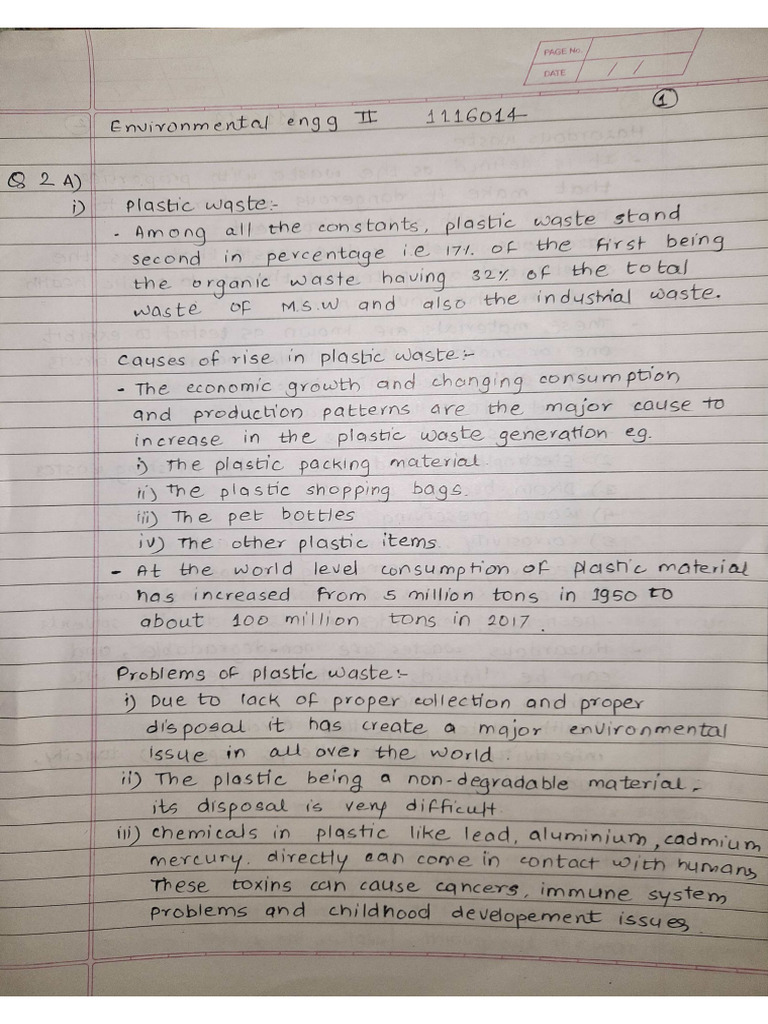 PAGE No.
DATE / /
1
Environmental engg II 1116014
Q 2 A)
i) Plastic waste:-
- Among all the constants, plastic waste stand
second in percentage i.e 17% of the first being
the organic waste having 32% of the total
waste of M.S.W and also the industrial waste.
Causes of rise in plastic waste:-
- The economic growth and changing consumption
and production patterns are the major cause to
increase in the plastic waste generation eg.
i) The plastic packing material.
ii) The plastic shopping bags.
iii) The pet bottles
iv) The other plastic items.
- At the world level consumption of plastic material
has increased from 5 million tons in 1950 to
about 100 million tons in 2017.
Problems of plastic waste:-
i) Due to lack of proper collection and proper
disposal it has create a major environmental
issue in all over the world.
ii) The plastic being a non-degradable material,
its disposal is very difficult.
iii) chemicals in plastic like lead, aluminium, cadmium
mercury. directly can come in contact with humans
These toxins can cause cancers, immune system
problems and childhood developement issues.